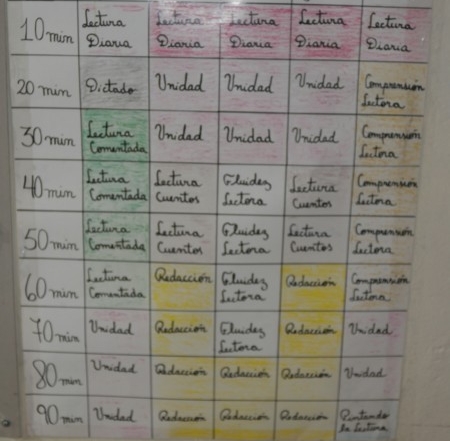 10 min Lectura Diaria Lectura Diaria Lectura Diaria Lectura Diaria Lectura Diaria
20 min Dictado Unidad Unidad Unidad Comprensión Lectora
30 min Lectura Comentada Unidad Unidad Unidad Comprensión Lectora
40 min Lectura Comentada Lectura Cuentos Fluidez Lectora Lectura Cuentos Comprensión Lectora
50 min Lectura Comentada Lectura Cuentos Fluidez Lectora Lectura Cuentos Comprensión Lectora
60 min Lectura Comentada Redacción Fluidez Lectora Redacción Comprensión Lectora
70 min Unidad Redacción Fluidez Lectora Redacción Unidad
80 min Unidad Redacción Redacción Redacción Unidad
90 min Unidad Redacción Redacción Redacción Pintando la Lectura